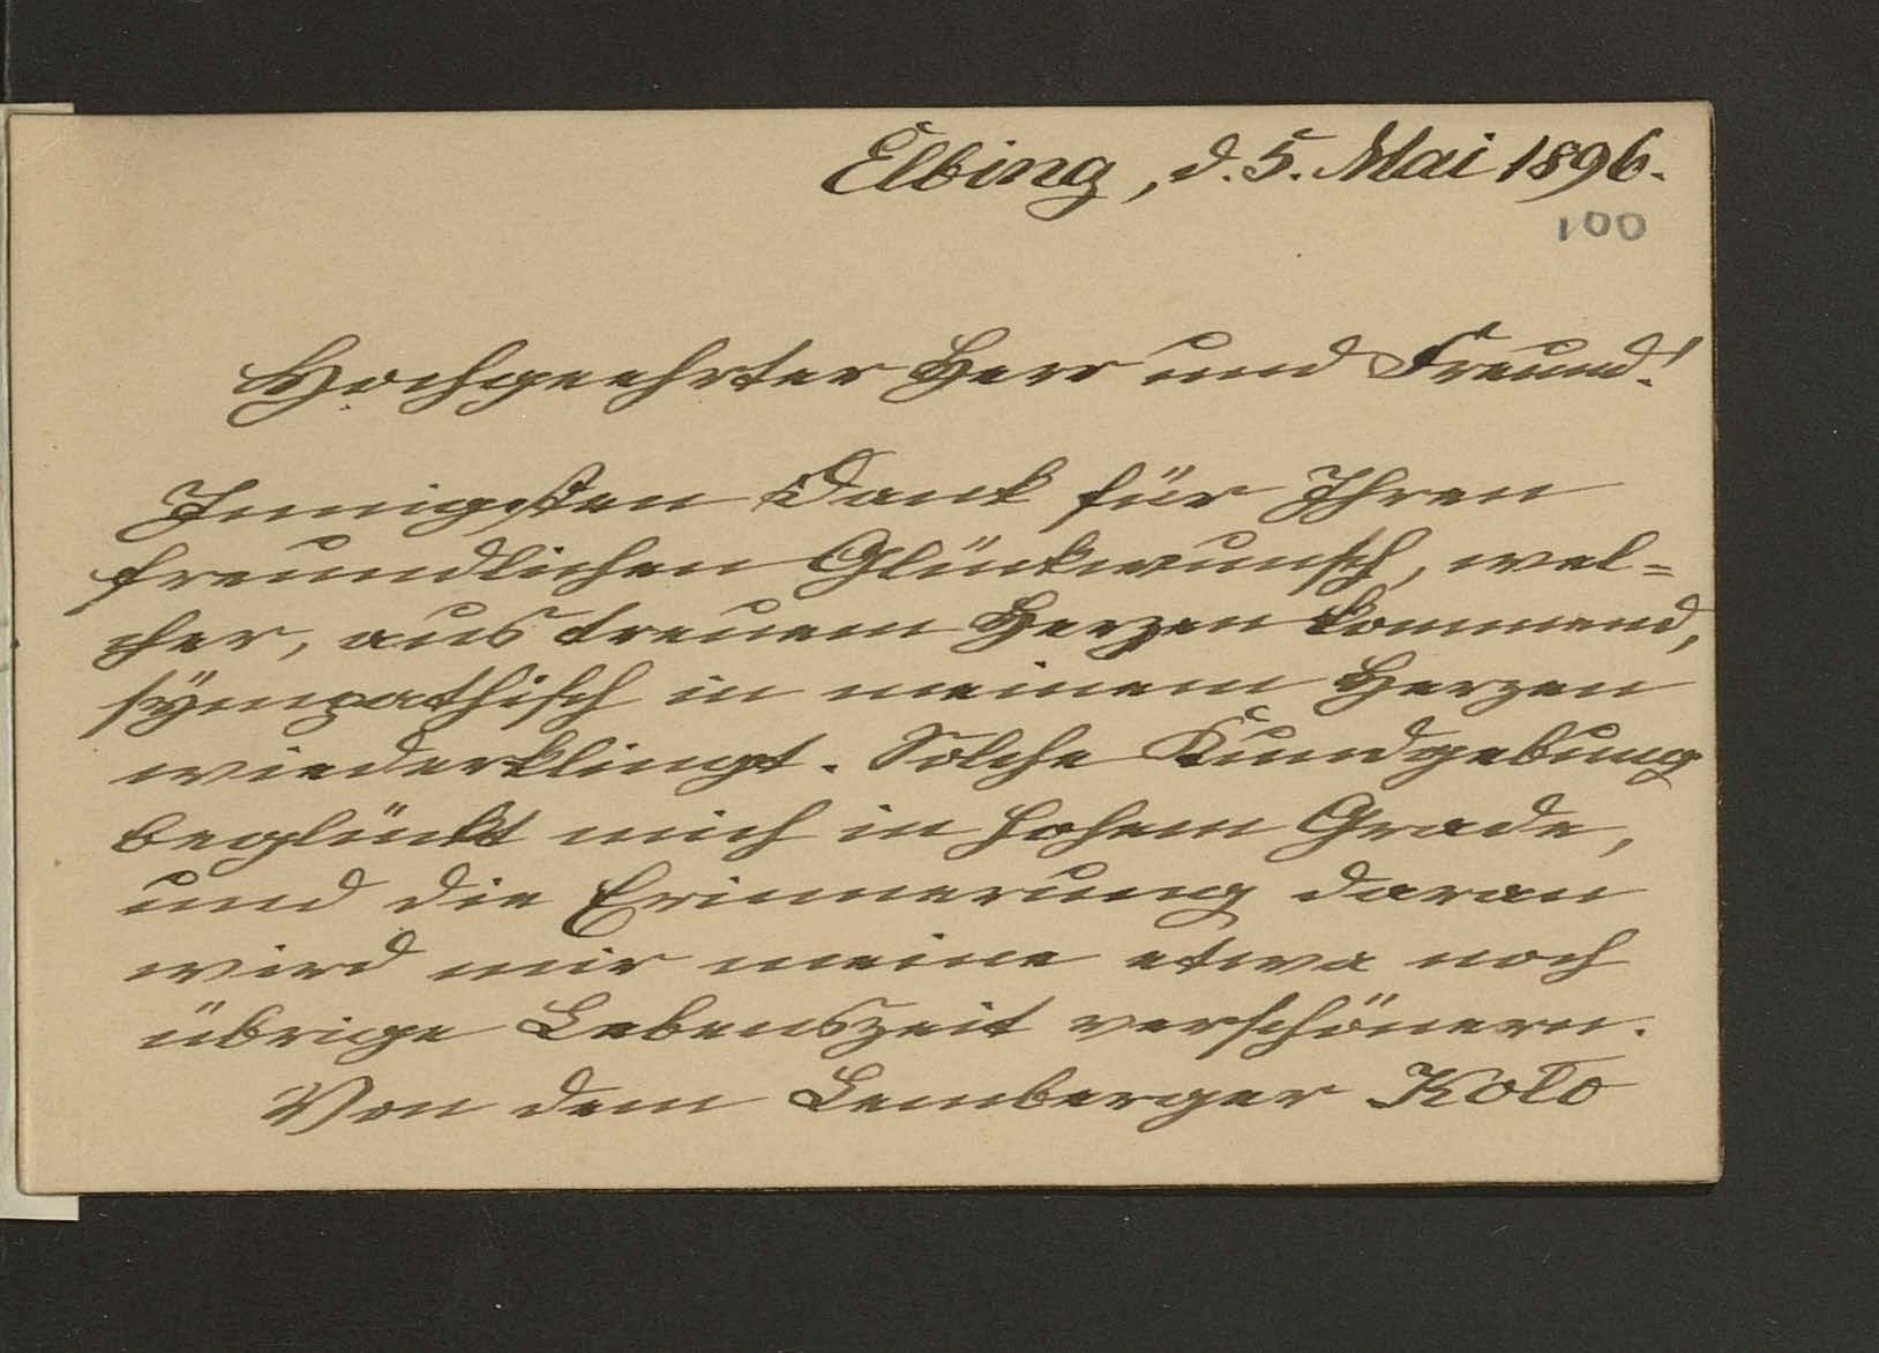 Elbing, d. 5. Mai 1896.
100
Hochgeehrter Herr und Freund!
Innigsten Dank für Ihren
freundlichen Glückwunsch, wel=
cher, aus treuem Herzen kommend,
sÿmpathisch in meinem Herzen
wiederklingt. Solche Kundgebung
beglückt mich in hohem Grade,
und die Erinnerung daran
wird mir meine etwa noch
übrige Lebenszeit verschönern.
Von dem Lemberger Koło